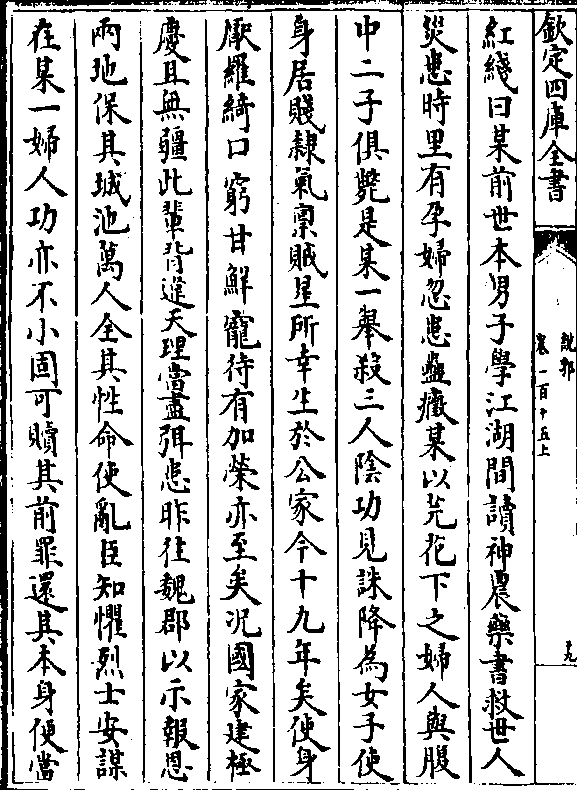 欽定四庫全書
說郛
卷一百十五上
紅綫曰某前世本男子學江湖間讀神農藥書救世人
災患時里有孕婦忽患蠱癥某以芫花下之婦人與腹
中二子俱斃是某一舉殺三人陰功見誅降為女子使
身居賤隸氣禀賊星所幸生於公家今十九年矣使身
厭羅綺口窮甘鮮寵待有加榮亦至矣況國家建極
慶且無疆此輩背違天理當盡弭患昨往魏郡以示報恩
兩地保其城池萬人全其性命使亂臣知懼烈士安謀
在某一婦人功亦不小固可贖其前罪還其本身便當